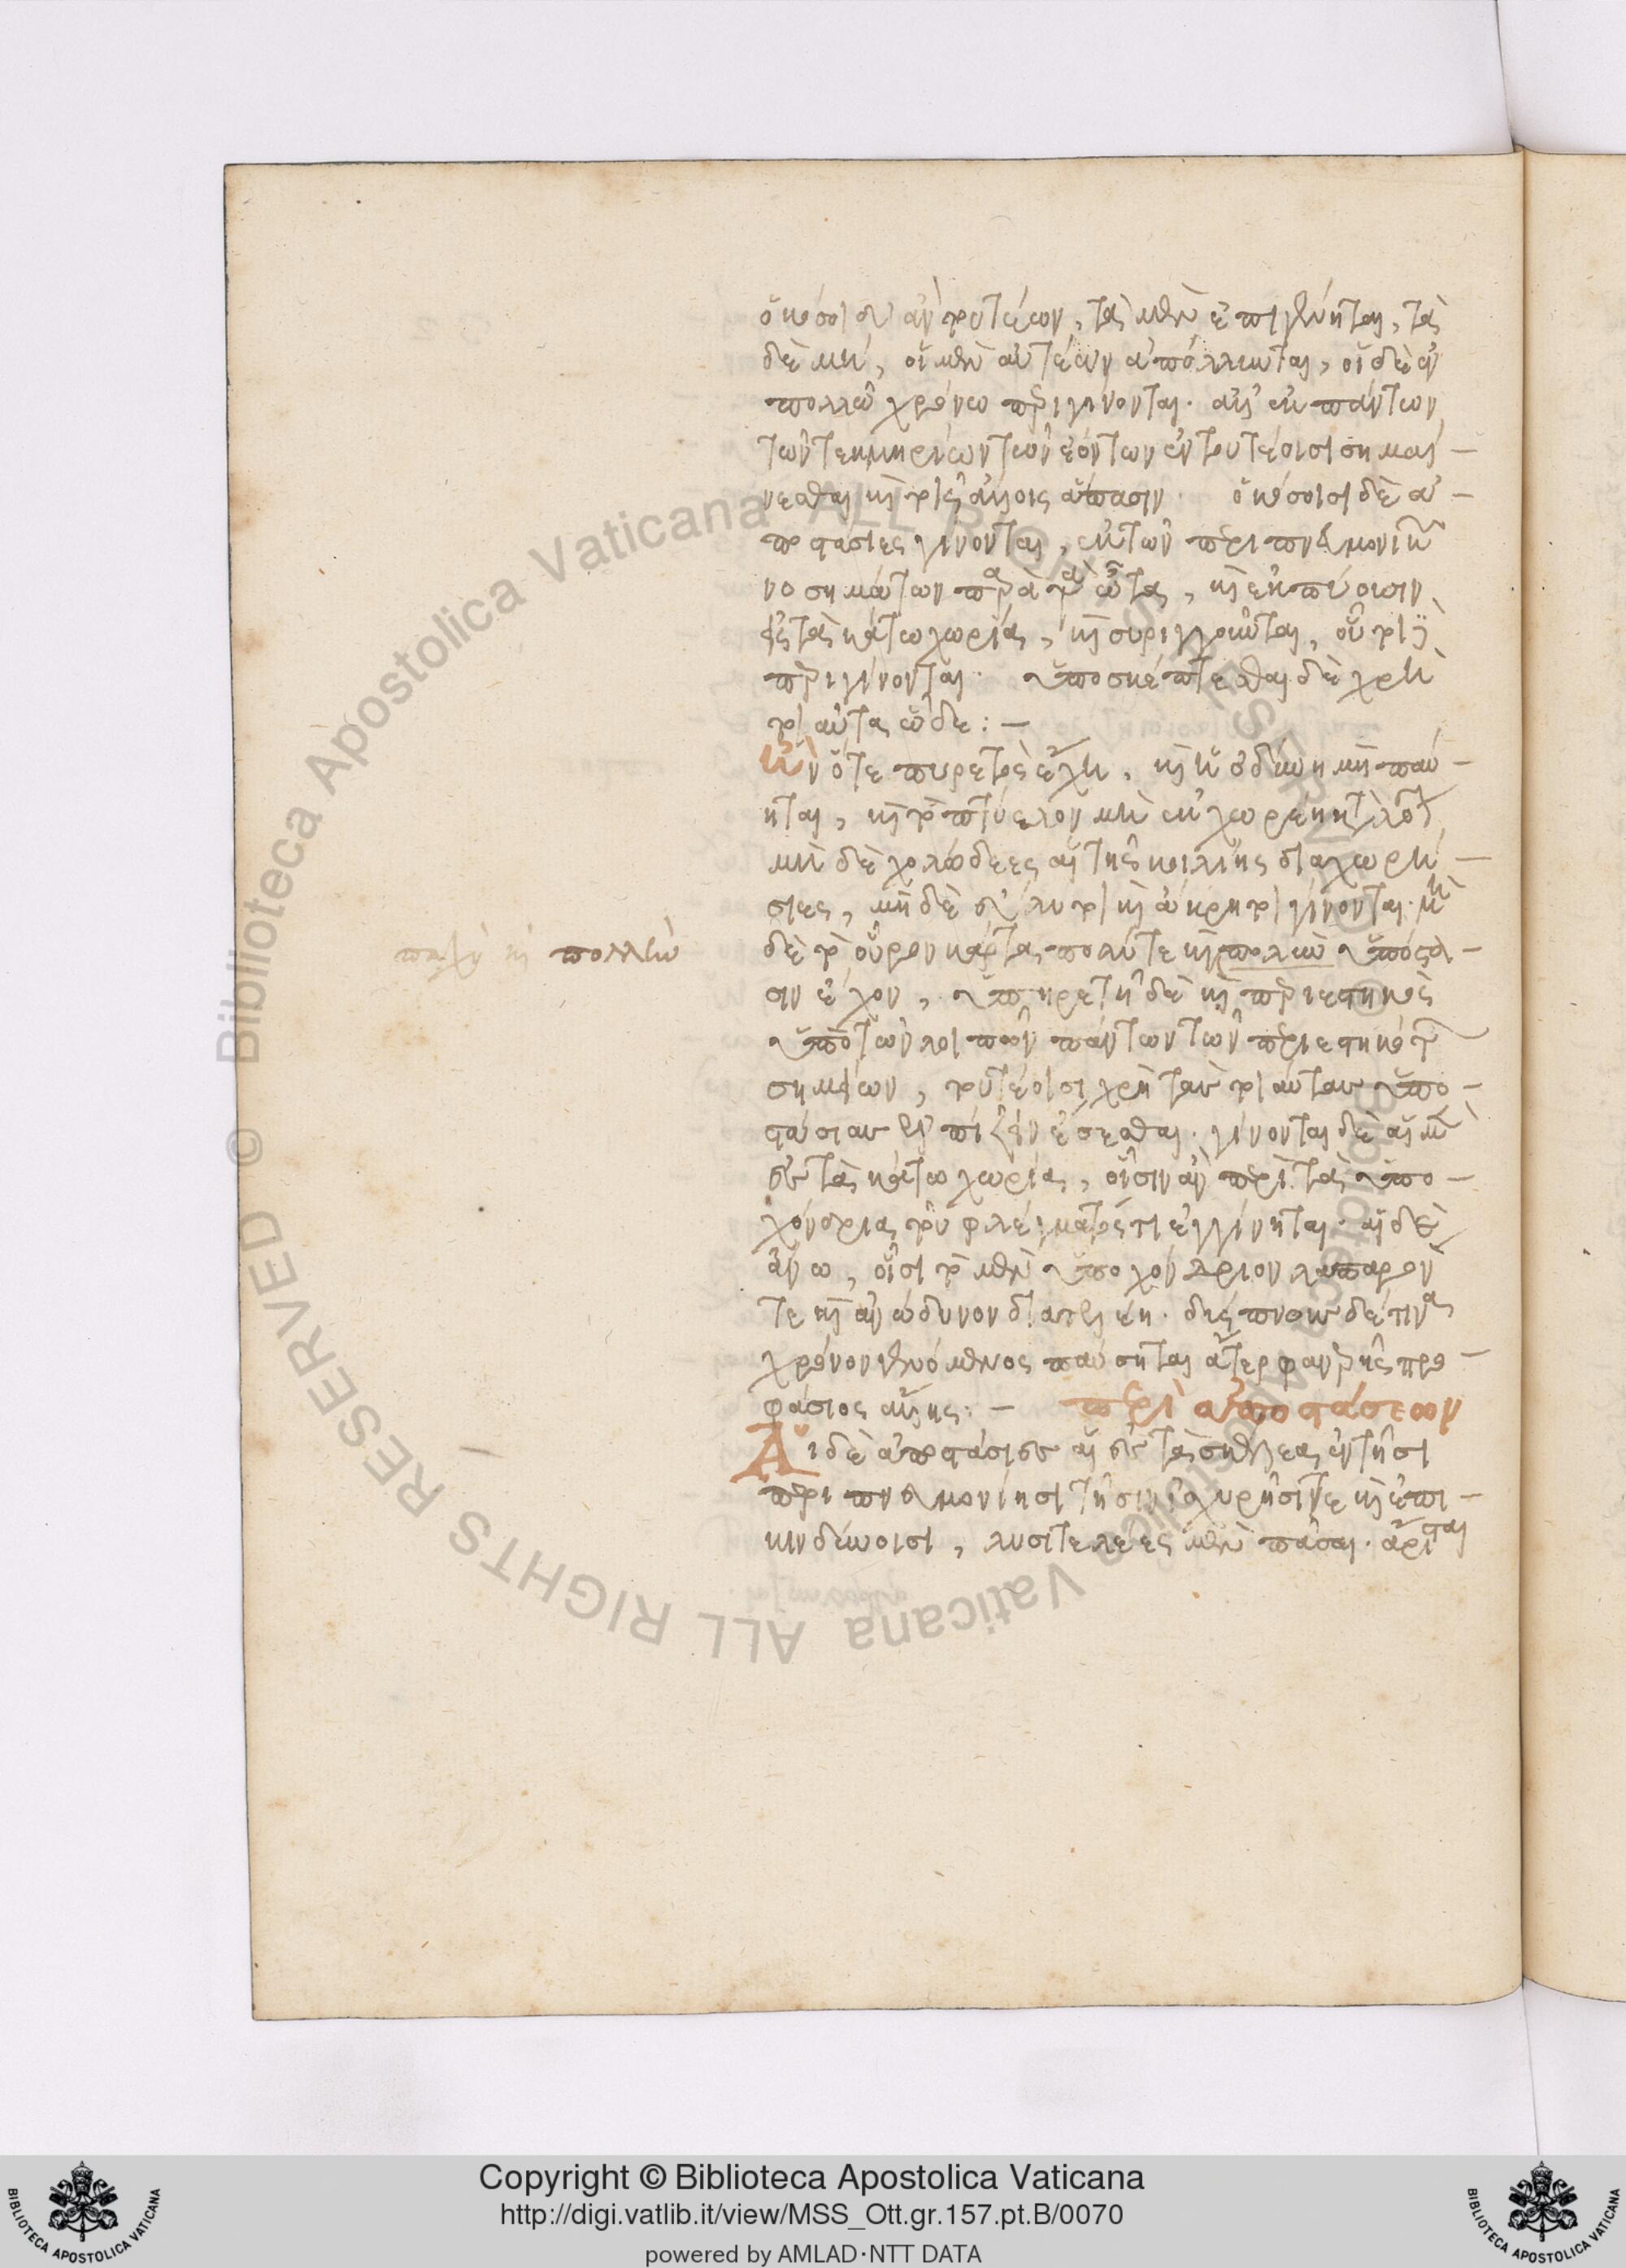 ὁκόσοι δ' ἂν τουτέων, τὰ μὲν ἐπιγένηται, τὰ
δὲ μή, οἱ μὲν αὐτέων ἀπόλλυνται, οἱ δὲ ἐν
πολλῶ χρόνω περιγίνονται. ἀλλ' ἐκ πάντων
τῶν τεκμηρίων τῶν ἐόντων ἐν τουτέοισι σημαί-
νεσθαι καὶ τοῖς ἄλλοις ἅπασιν. ὁκόσοισι δὲ ἀ-
ποστάσιες γίνονται, ἐκ τῶν περιπνευμονικῶν
νοσημάτων παρὰ τὰ ὦτα, καὶ ἐκπύοισιν
εἰς τὰ κάτω χωρία, καὶ συριγγοῦνται, οὗτοι
περιγίνονται. ὑποσκέπτεσθαι δὲ χρὴ
τοιαῦτα ὧδε: –
ἢν ὅτε πυρετὸς ἔχη, καὶ ἡ ὀδύνη μὴ παύ-
ηται, καὶ τὸ πτύελον μὴ ἐκχωρέη κατὰ λόγον
μὴ δὲ χολώδεες αἱ τῆς κοιλίης διαχωρή-
σιες, μὴ δὲ εὔλυτοι καὶ ἄκρητοι γίνονται. μὴ
δὲ τὸ οὖρον κάρτα πολύ τε καὶ πολλὴν ὑπόστα-
σιν ἔχον, ὑπηρετῆ δὲ καὶ περιεστηκὸς
ὑπὸ τῶν λοιπῶν πάντων τῶν περιεστηκότων
σημείων, τουτέοισι χρὴ τὰς τοιαύτας ἀπο-
στάσιας ἐλπίζειν ἔσεσθαι. γίνονται δὲ αἱ μὲν
ἐς τὰ κάτω χωρία, οἷσιν ἂν περὶ τὰ ὑπο-
χόνδρια τοῦ φλέγματός τι ἐγγίνηται. αἱ δὲ
ἄνω, οἷσι τὸ μὲν ὑποχόνδριον λαπαρόν
τε καὶ ἀνώδυνον διατελέη. δύσπνους δέ τινα
χρόνον γενόμενος παύσηται ἄτερ φανερῆς προ-
φάσιος ἄλλης: – περὶ ἀποστάσεων
Αἱ δὲ ἀποστάσιες αἱ ἐς τὰ σκέλεα, ἐν τῆσι
περιπνευμονίησι τῆσιν ἰσχυρῆσί τε καὶ ἐπι-
κινδύνοισι, λυσιτελέες μὲν πᾶσαι. ἄρισται
παχὺ καὶ πολλὴν
Copyright © Biblioteca Apostolica Vaticana
http://digi.vatlib.it/view/MSS_Ott.gr.157.pt.B/0070
powered by AMLAD·NTT DATA
BIBLIOTECA APOSTOLICA VATICANA
BIBLIOTECA APOSTOLICA VATICANA
© Biblioteca Apostolica Vaticana ALL RIGHTS RESERVED © Biblioteca Apostolica Vaticana ALL RIGHTS RESERVED